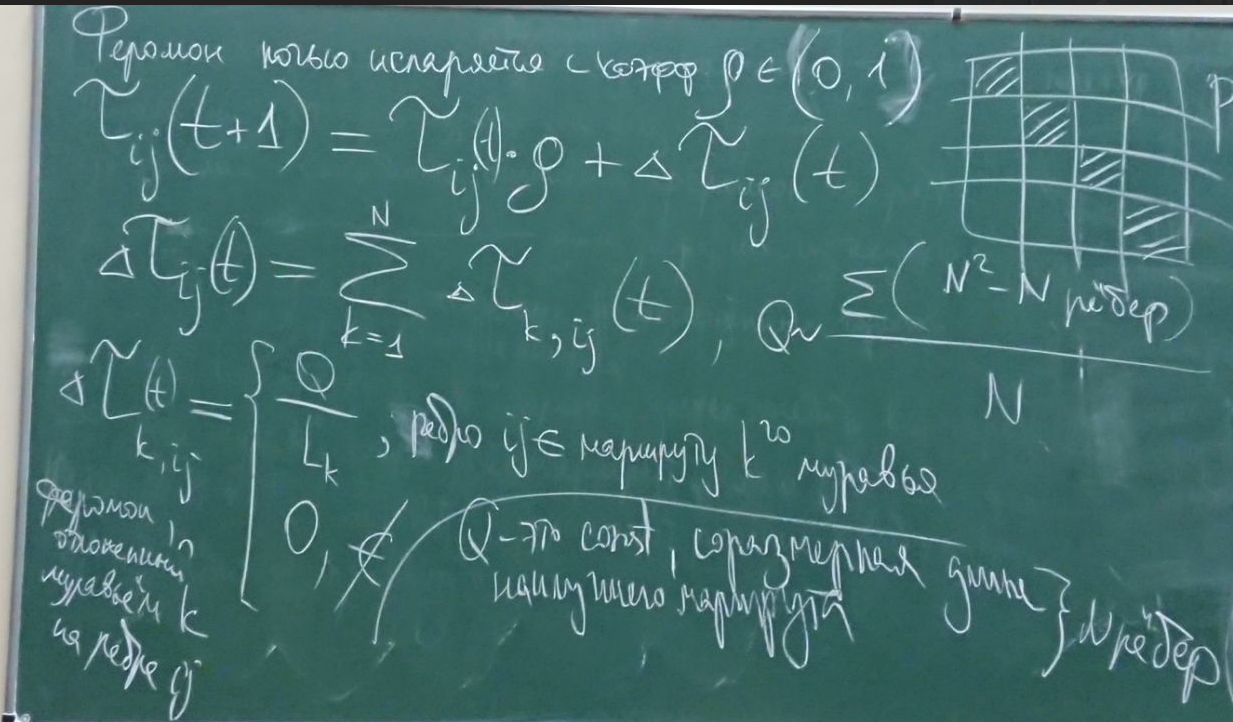 Феромон ночью испаряется с коэфф ρ ∈ (0, 1)
τij(t+1) = τij(t)·ρ + Δτij(t)
Δτij(t) = Σ N k=1 Δτk,ij(t), Q ~ Σ(N²-N рёбер) / N
Δτ(t)k,ij = { Q / Lk, ребро ij ∈ маршруту kго муравья
0, ∉
феромон,
отложенный
муравьём k
на ребре ij
Q - это const, соразмерная длине
наилучшего маршрута } N рёбер